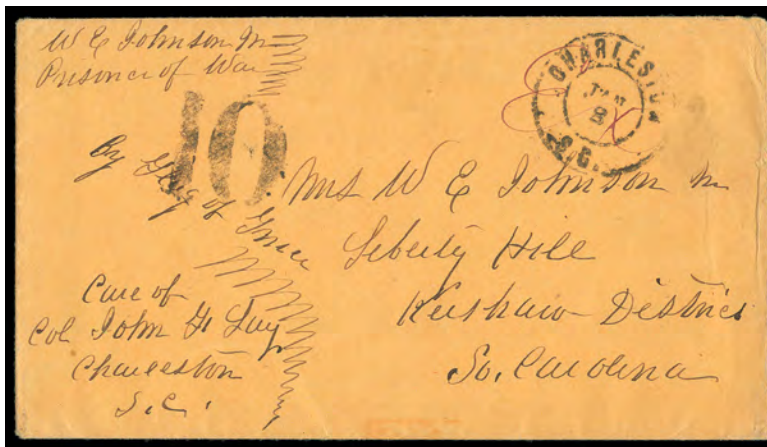 W E Johnson Jn
Prisoner of War
CHARLESTON
JAN
8
S.C.
10
By Flag of Truce
Mrs W E Johnson Jn
Liberty Hill
Kershaw District
So. Carolina
Care of
Col John F Lay
Charleston
S.C.